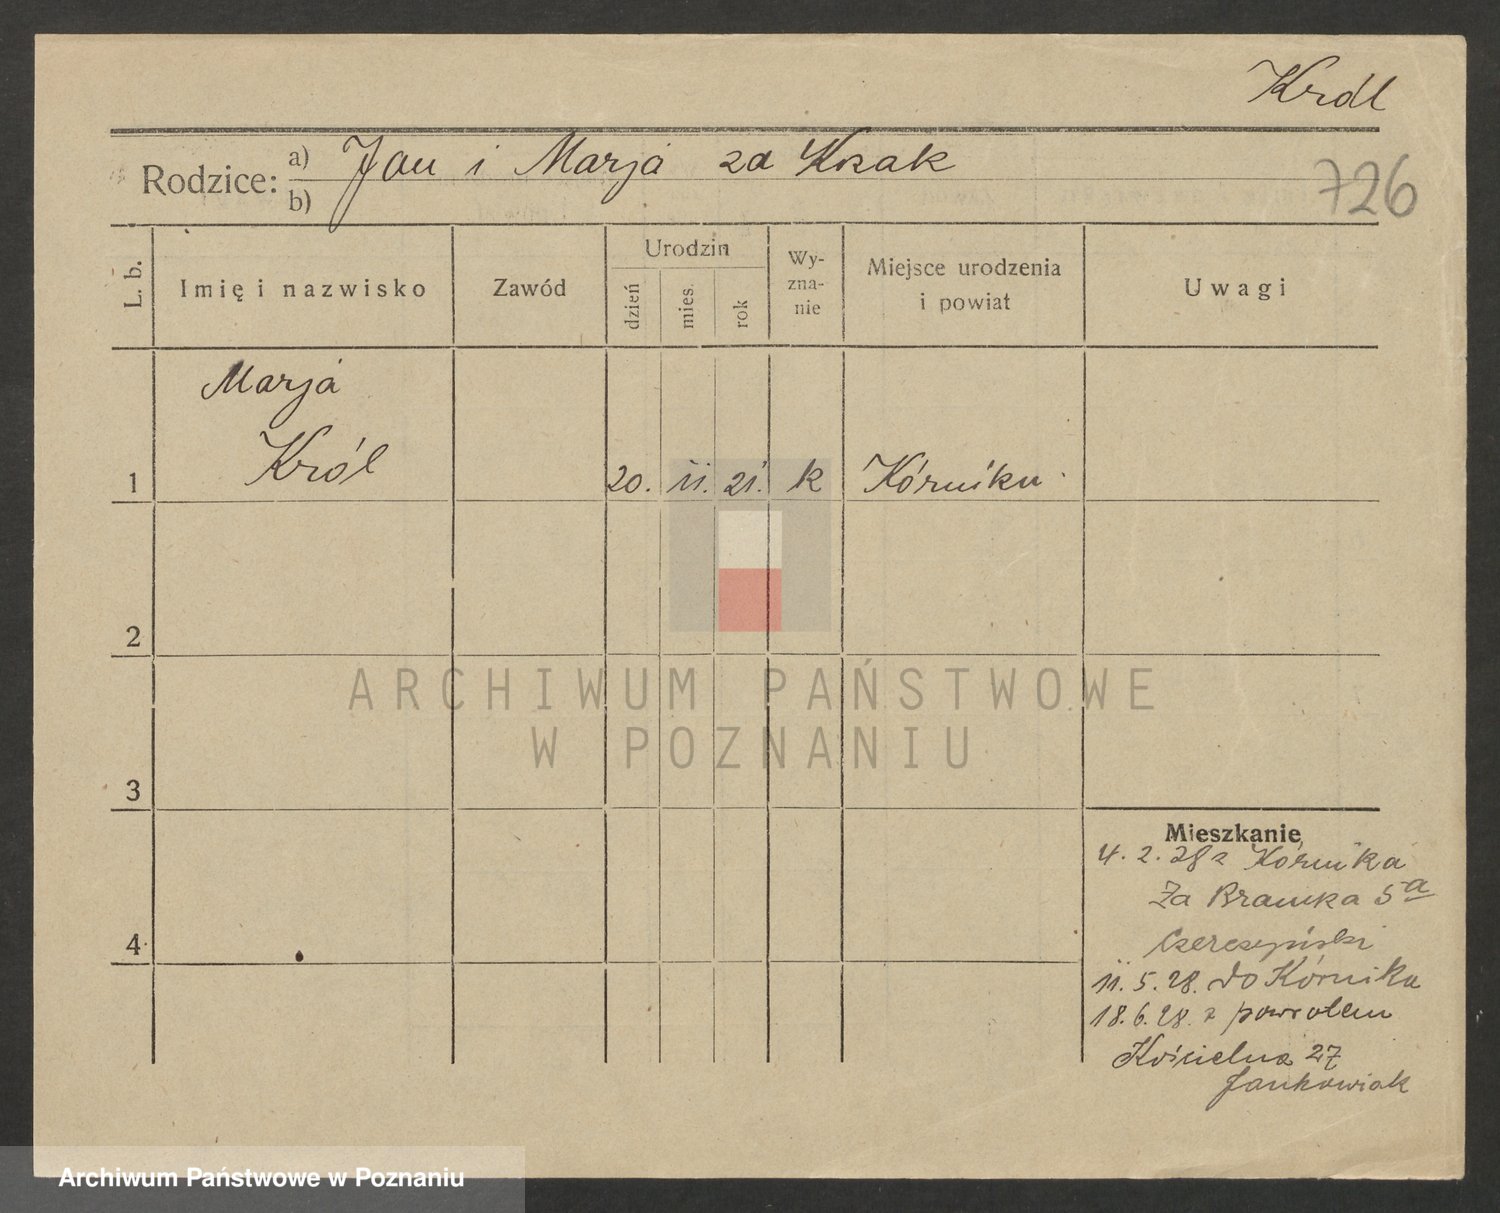 Król
Rodzice: a) Jan i Marja zd Kozak
b)
726
L. b. Imię i nazwisko Zawód Urodzin dzień mies. rok Wy-zna-nie Miejsce urodzenia i powiat Uwagi
Marja
Król
1 20. 11. 21. k Kórniku
2
3
Mieszkanie
4. 2. 28 z Kórnika
Za Bramka 5a
4
11. 5. 28. do Kórnika
18. 6. 28. z powrotem
Kościelna 27
Jankowiak
ARCHIWUM PAŃSTWOWE
W POZNANIU
Archiwum Państwowe w Poznaniu